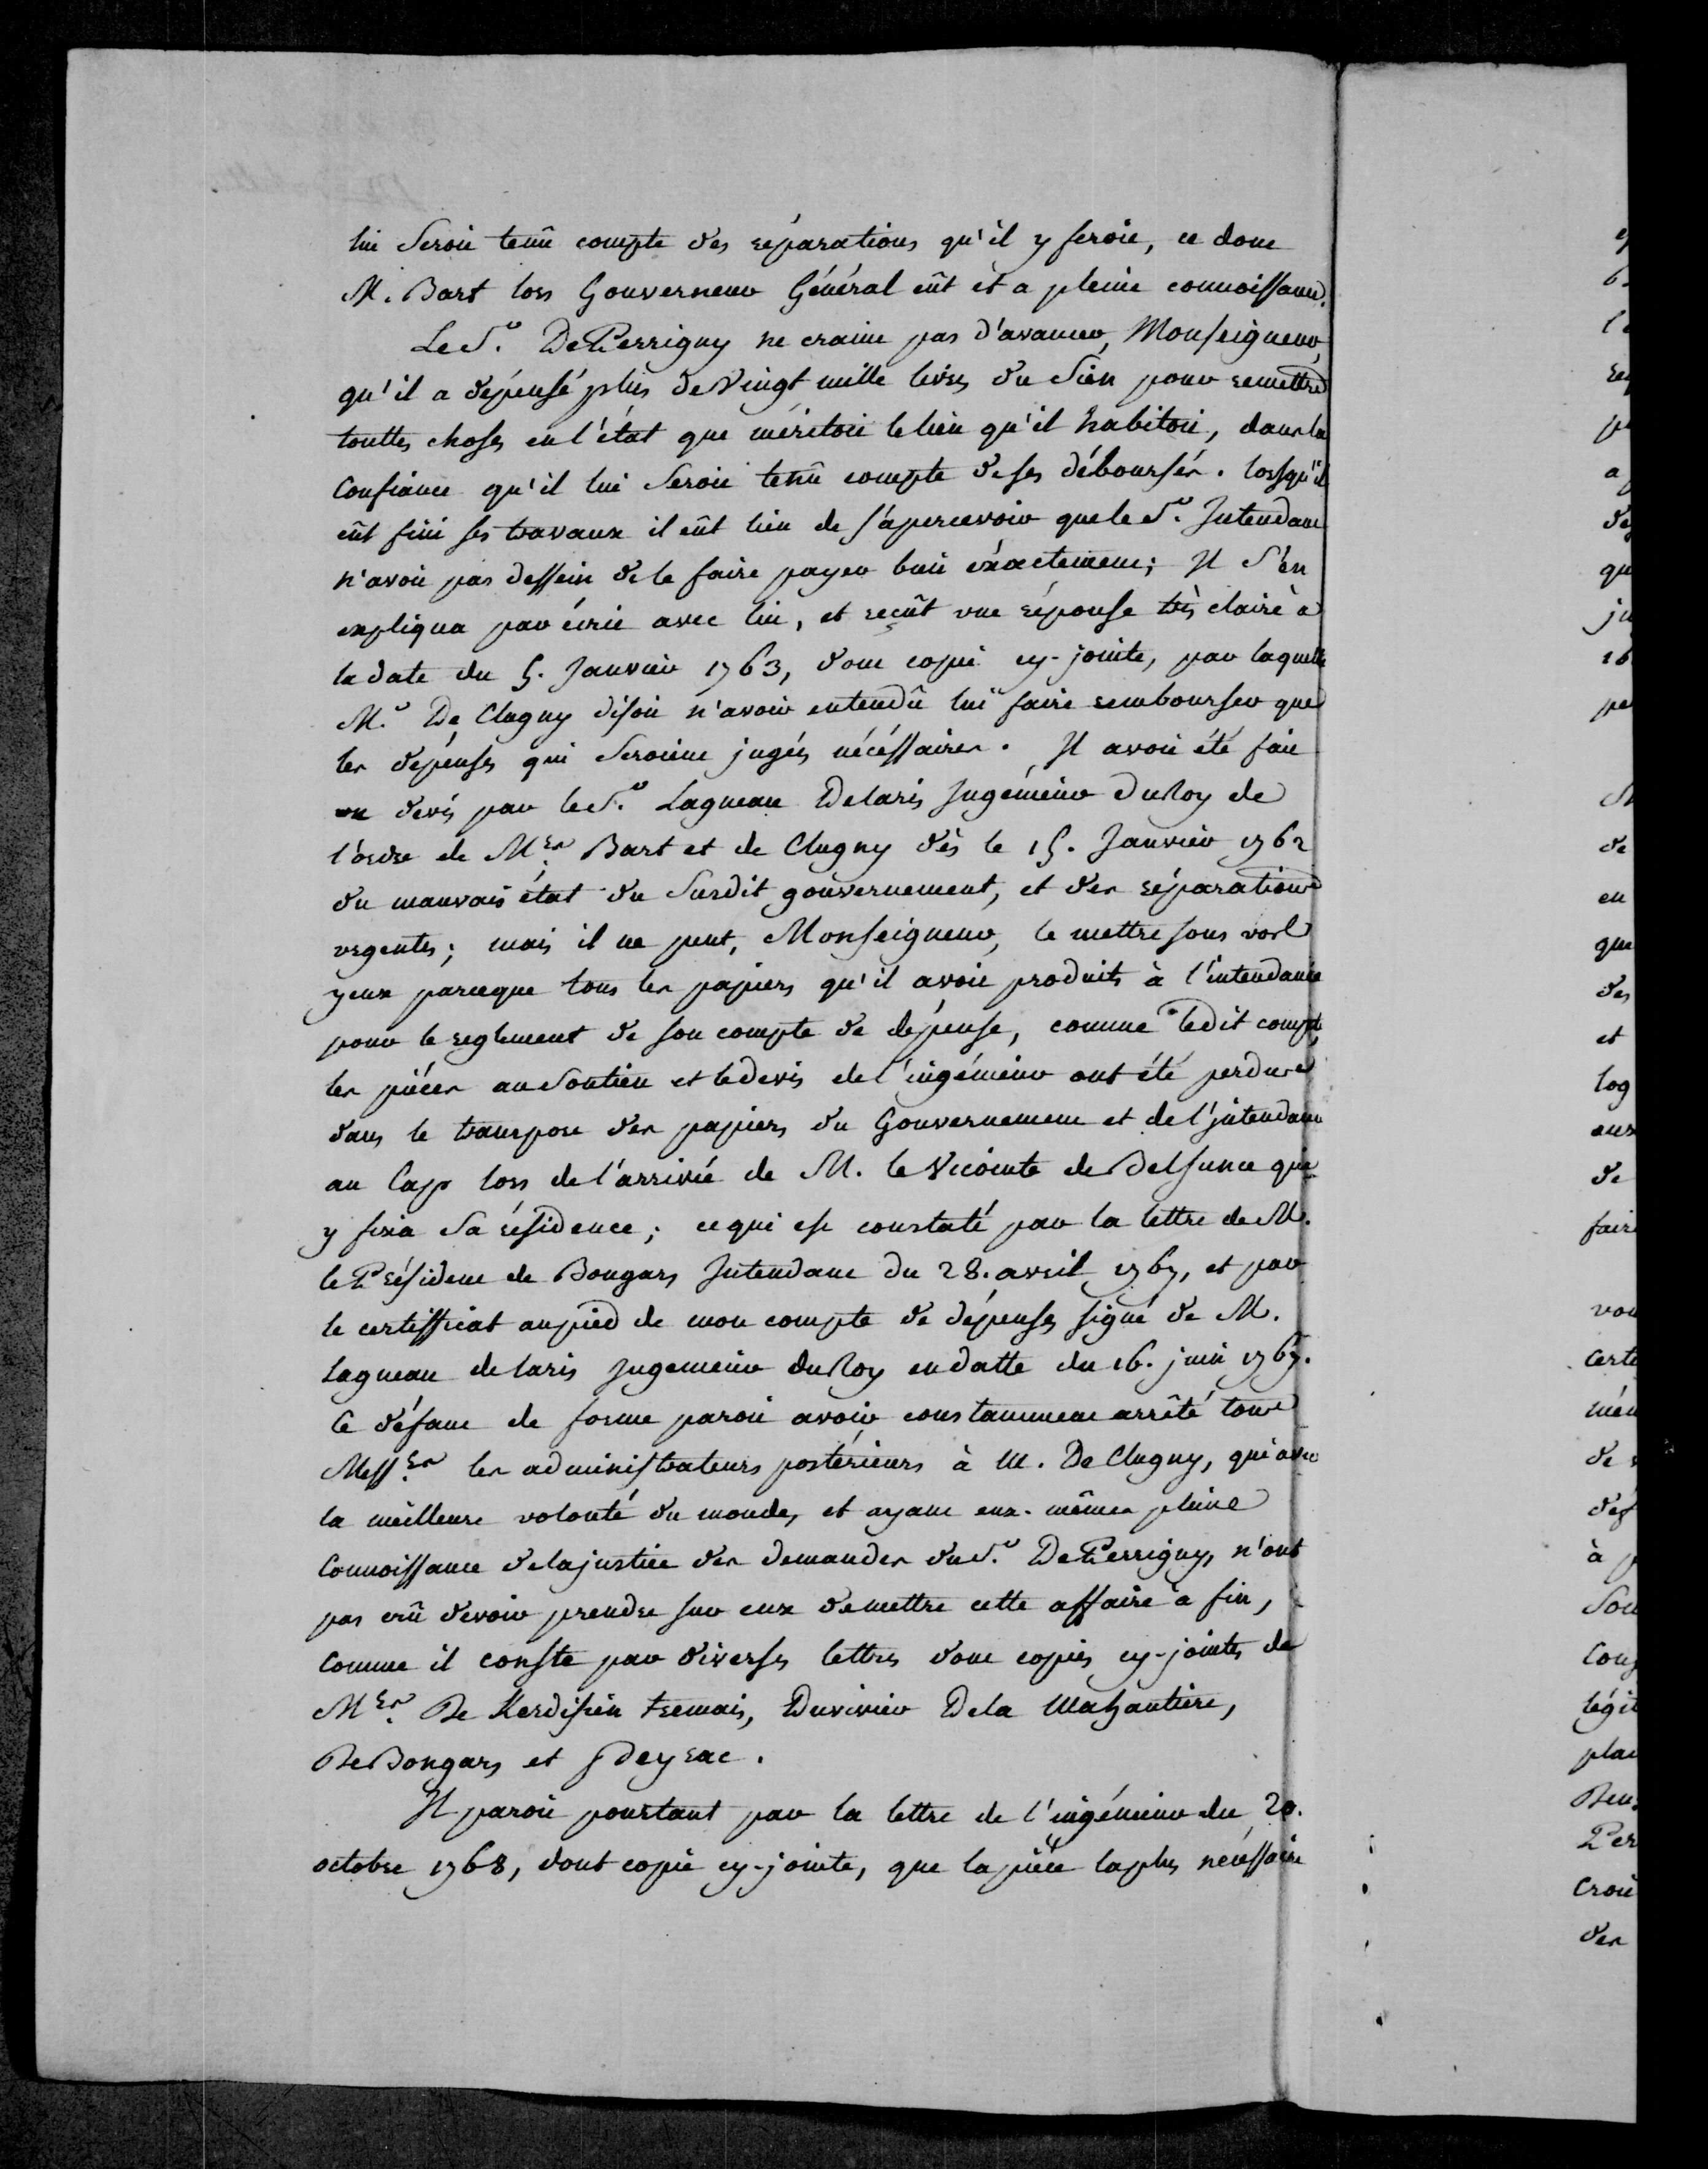 lui seroit tenû compte des réparations qu'il y feroit, ce dont
M. Bart lors Gouverneur Général eût et a pleine connoissance.
Le Sr. De Perrigny ne craint pas d'avancer, Monseigneur,
qu'il a dépensé plus de Vingt mille livres du sien pour remettre
touttes choses en l'état que méritoit le lieu qu'il habitoit, dans la
confiance qu'il lui seroit tenû compte de ses déboursés. lorsqu'il
eût fini ses travaux il eût lieu de s'apercevoir que le Sr. Intendant
n'avoit pas dessein de le faire payer bien éxactement; Il s'en
expliqua par écrit avec lui, et reçût une réponse très claire à
la date du 5. Janvier 1763, dont copie cy-jointe, par laquelle
Mr. De Clugny disoit n'avoir entendû lui faire rembourser que
les dépenses qui seroient jugés nécéssaires. Il avoit été fait
un devis par le Sr. Lagneau Delaris Ingénieur du Roy de
l'ordre de Mrs. Bart et de Clugny dès le 15. Janvier 1762
du mauvais état du surdit gouvernement, et des réparations
urgentes; mais il ne peut, Monseigneur, le mettre sous vos
yeux parceque tous les papiers qu'il avoit produits à l'intendance
pour le reglement de son compte de dépense, comme ledit compte,
les pièces au soutien et le devis de l'ingénieur ont été perdus
dans le transport des papiers du Gouvernement et de l'intendance
au Cap lors de l'arrivée de M. le Vicomte de Belsunce qui
y fixa sa résidence; ce qui est constaté par la lettre de M.
le Président de Bongars Intendant du 28. avril 1767, et par
le certifficat au pied de mon compte de dépenses signé de M.
Lagneau de laris Ingenieur du Roy en datte du 16. juin 1767.
Ce défaut de forme paroit avoir constamment arrêté tous
Messrs. les administrateurs postérieurs à M. De Clugny, qui avec
la meilleure volonté du monde, et ayant eux-mêmes pleine
connoissance de la justice des demandes du Sr. De Perrigny, n'ont
pas crû devoir prendre sur eux de mettre cette affaire à fin,
comme il conste par diverses lettres dont copies cy-jointes de
Mrs. De Kerdisien tremais, Duvivier De la Mahautiere,
De Bongars et
Il paroit pourtant par la lettre de l'ingénieur du 20.
octobre 1768, dont copie cy-jointe, que la pièce la plus necéssaire